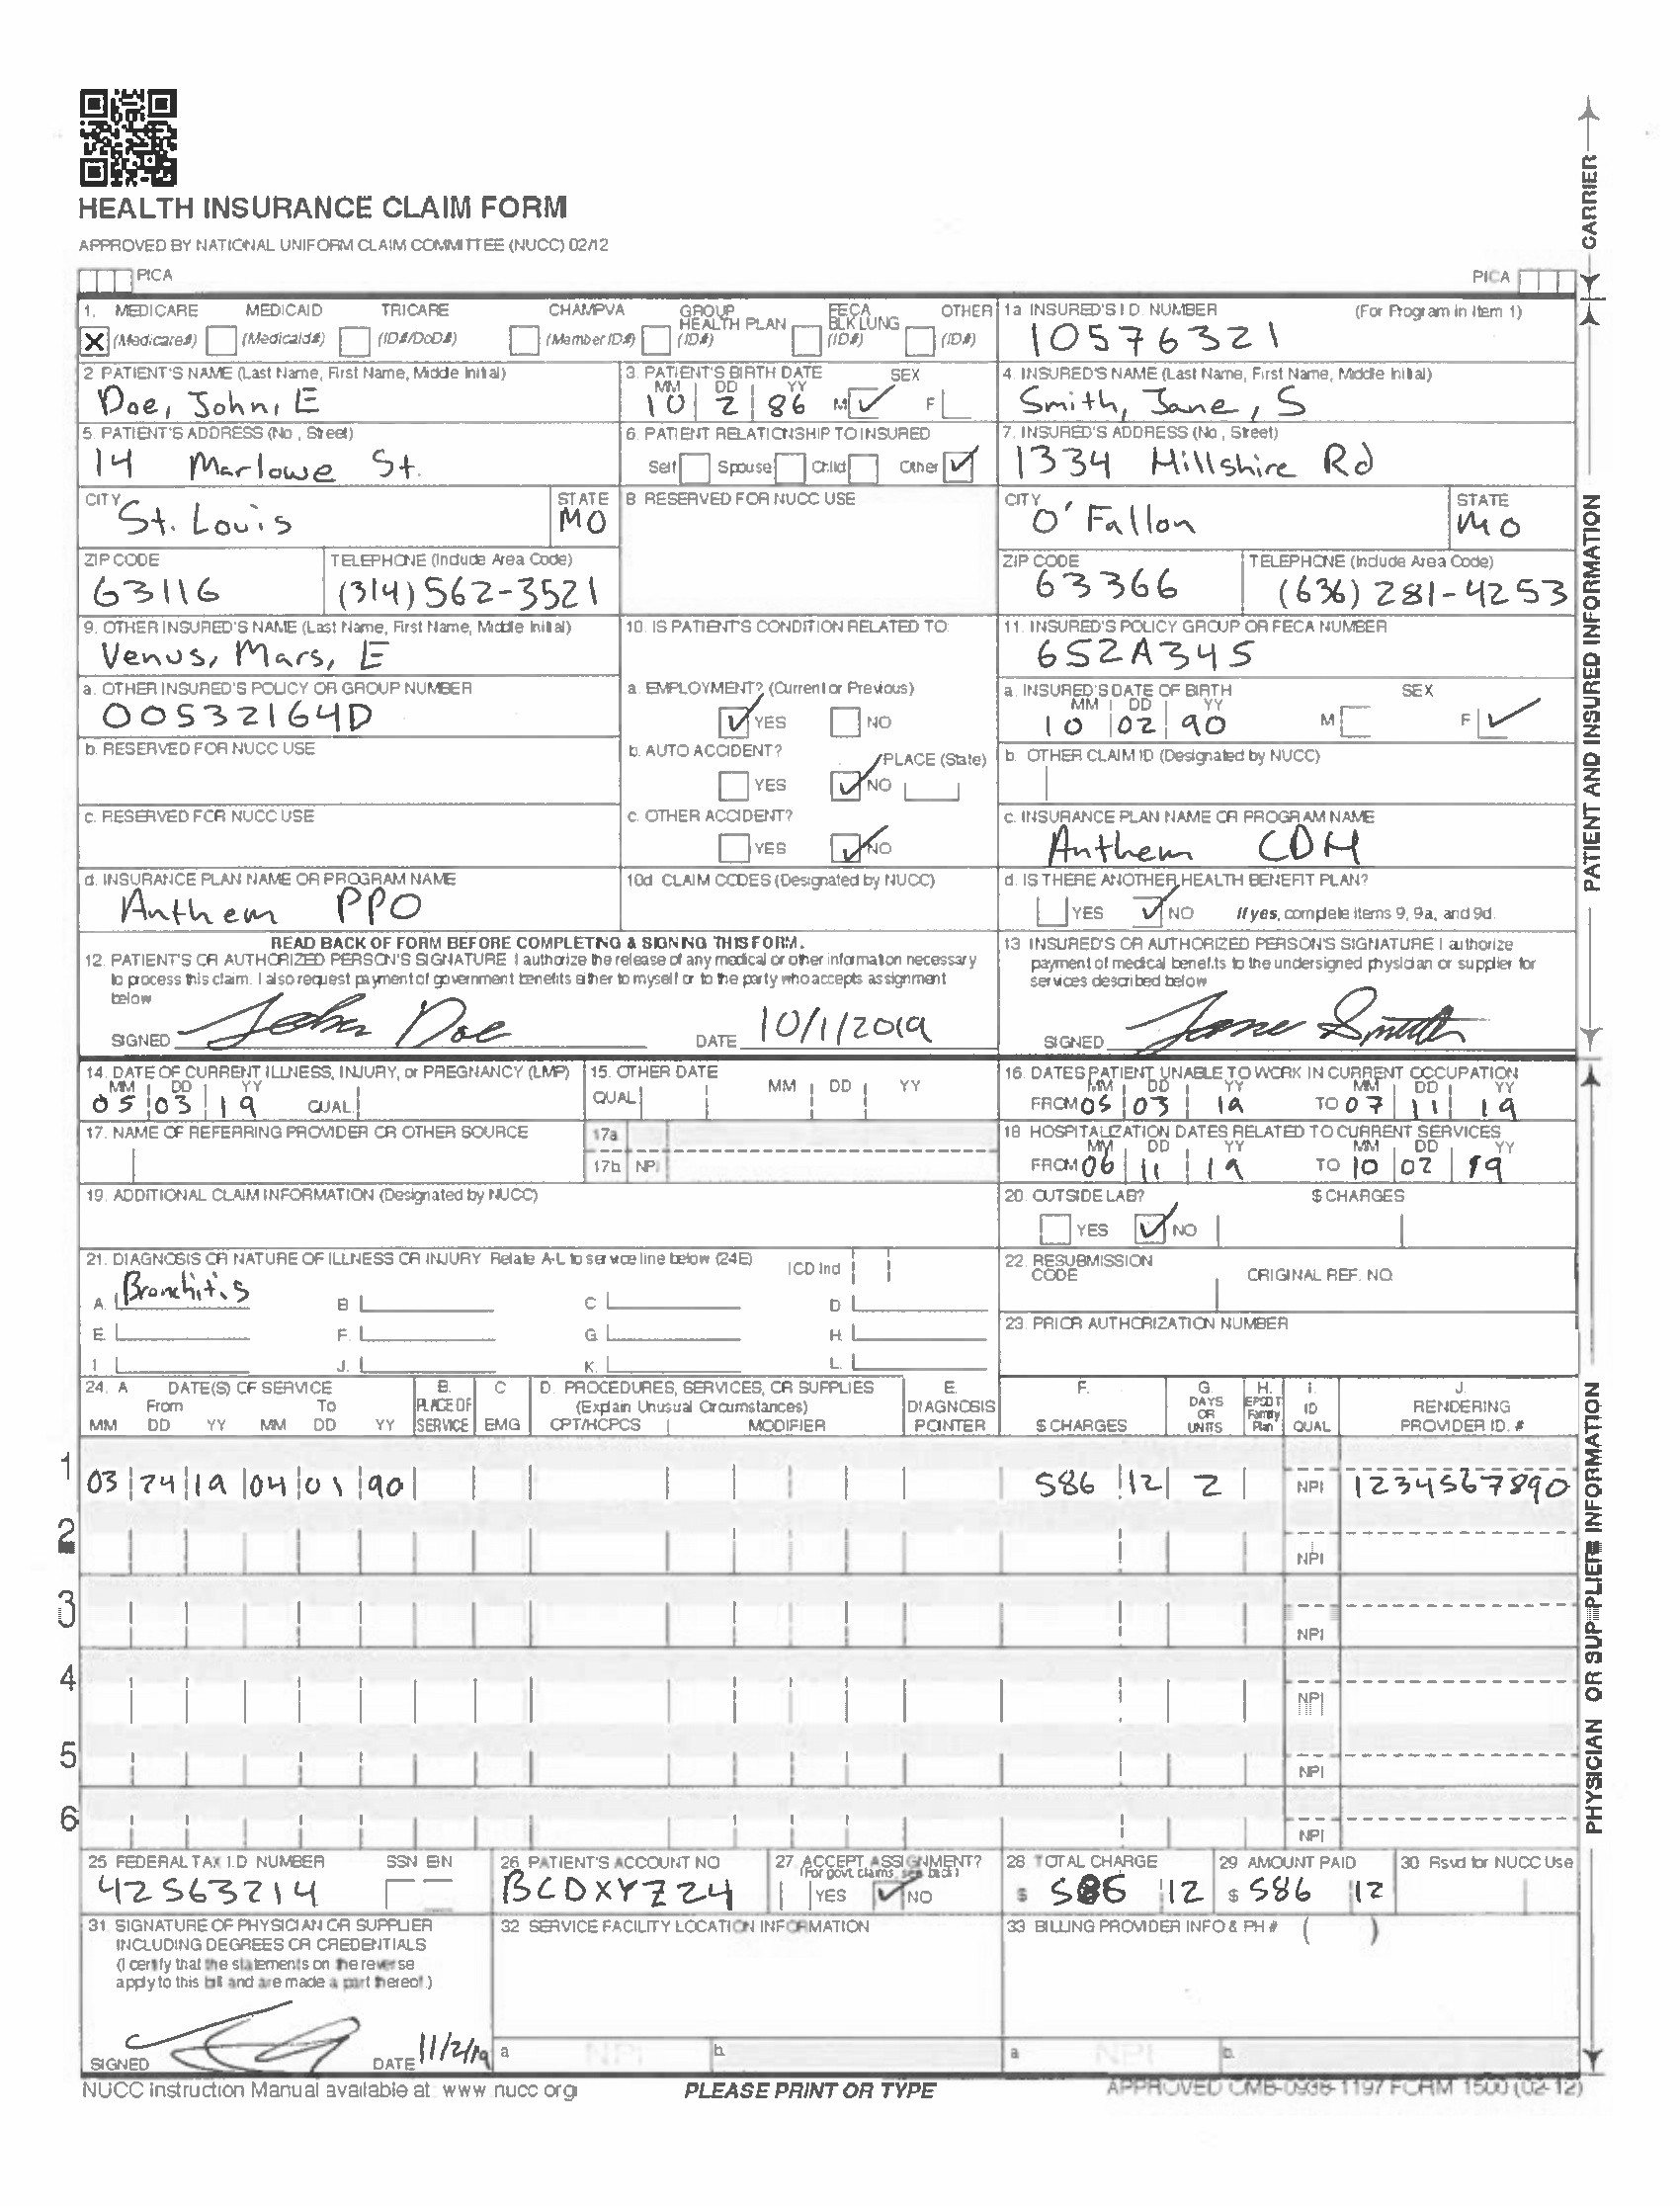 HEALTH INSURANCE CLAIM FORM
APPROVED BY NATIONAL UNIFORM CLAIM COMMITTEE (NUCC) 02/12
PICA
PICA
CARRIER
1. MEDICARE MEDICAID TRICARE CHAMPVA GROUP HEALTH PLAN FECA BLK LUNG OTHER
X (Medicare#) (Medicaid#) (ID#/DoD#) (Member ID#) (ID#) (ID#) (ID#)
1a INSURED'S I.D. NUMBER (For Program in Item 1)
10576321
2 PATIENT'S NAME (Last Name, First Name, Middle Initial)
Doe, John, E
3. PATIENT'S BIRTH DATE SEX
MM DD YY
10 2 86 M F
4. INSURED'S NAME (Last Name, First Name, Middle Initial)
Smith, Jane, S
5. PATIENT'S ADDRESS (No., Street)
14 Marlowe St.
6. PATIENT RELATIONSHIP TO INSURED
Self Spouse Child Other
7. INSURED'S ADDRESS (No., Street)
1334 Millshire Rd
CITY STATE
St. Louis MO
8 RESERVED FOR NUCC USE
CITY STATE
O'Fallon MO
ZIP CODE TELEPHONE (Include Area Code)
63116 (314) 562-3521
ZIP CODE TELEPHONE (Include Area Code)
63366 (636) 281-4253
9. OTHER INSURED'S NAME (Last Name, First Name, Middle Initial)
Venus, Mars, E
10. IS PATIENT'S CONDITION RELATED TO:
11. INSURED'S POLICY GROUP OR FECA NUMBER
652A345
a. OTHER INSURED'S POLICY OR GROUP NUMBER
00532164D
a. EMPLOYMENT? (Current or Previous)
YES NO
a. INSURED'S DATE OF BIRTH SEX
MM DD YY
10 02 90 M F
b. RESERVED FOR NUCC USE
b. AUTO ACCIDENT? PLACE (State)
YES NO
b. OTHER CLAIM ID (Designated by NUCC)
c. RESERVED FOR NUCC USE
c. OTHER ACCIDENT?
YES NO
c. INSURANCE PLAN NAME OR PROGRAM NAME
Anthem CDH
d. INSURANCE PLAN NAME OR PROGRAM NAME
Anthem PPO
10d CLAIM CODES (Designated by NUCC)
d. IS THERE ANOTHER HEALTH BENEFIT PLAN?
YES NO If yes, complete items 9, 9a, and 9d.
PATIENT AND INSURED INFORMATION
READ BACK OF FORM BEFORE COMPLETING & SIGNING THIS FORM.
12. PATIENT'S OR AUTHORIZED PERSON'S SIGNATURE I authorize the release of any medical or other information necessary
to process this claim. I also request payment of government benefits either to myself or to the party who accepts assignment
below
SIGNED John Doe DATE 10/1/2019
13 INSURED'S OR AUTHORIZED PERSON'S SIGNATURE I authorize
payment of medical benefits to the undersigned physician or supplier for
services described below
SIGNED Jane Smith
14. DATE OF CURRENT ILLNESS, INJURY, or PREGNANCY (LMP)
MM DD YY
05 03 19 QUAL
15. OTHER DATE
QUAL MM DD YY
16. DATES PATIENT UNABLE TO WORK IN CURRENT OCCUPATION
MM DD YY MM DD YY
FROM 05 03 19 TO 07 11 19
17. NAME OF REFERRING PROVIDER OR OTHER SOURCE
17a
17b NPI
18 HOSPITALIZATION DATES RELATED TO CURRENT SERVICES
MM DD YY MM DD YY
FROM 06 11 19 TO 10 02 19
19. ADDITIONAL CLAIM INFORMATION (Designated by NUCC)
20. OUTSIDE LAB? $ CHARGES
YES NO
21. DIAGNOSIS OR NATURE OF ILLNESS OR INJURY Relate A-L to service line below (24E) ICD Ind
A. Bronchitis B C D
E. F. G. H.
I. J. K. L.
22. RESUBMISSION CODE ORIGINAL REF. NO.
23. PRIOR AUTHORIZATION NUMBER
24. A DATE(S) OF SERVICE B. C D. PROCEDURES, SERVICES, OR SUPPLIES E. F. G. H. I. J.
From To PLACE OF (Explain Unusual Circumstances) DIAGNOSIS DAYS OR UNITS EPSDT Family Plan ID RENDERING
MM DD YY MM DD YY SERVICE EMG CPT/HCPCS MODIFIER POINTER $ CHARGES QUAL PROVIDER ID. #
1
03 24 19 04 01 90 586 12 2 NPI 1234567890
2
NPI
3
NPI
4
NPI
5
NPI
6
NPI
PHYSICIAN OR SUPPLIER INFORMATION
25 FEDERAL TAX I.D NUMBER SSN EIN
42563214
26. PATIENT'S ACCOUNT NO
BCDXYZ24
27. ACCEPT ASSIGNMENT?
(For govt. claims, see back)
YES NO
28 TOTAL CHARGE
$ 586 12
29 AMOUNT PAID
$ 586 12
30 Rsvd for NUCC Use
31 SIGNATURE OF PHYSICIAN OR SUPPLIER
INCLUDING DEGREES OR CREDENTIALS
(I certify that the statements on the reverse
apply to this bill and are made a part thereof.)
SIGNED DATE 11/2/19
32 SERVICE FACILITY LOCATION INFORMATION
a NPI b.
33 BILLING PROVIDER INFO & PH # ( )
a NPI b.
NUCC Instruction Manual available at: www.nucc.org
PLEASE PRINT OR TYPE
APPROVED OMB-0938-1197 FORM 1500 (02-12)